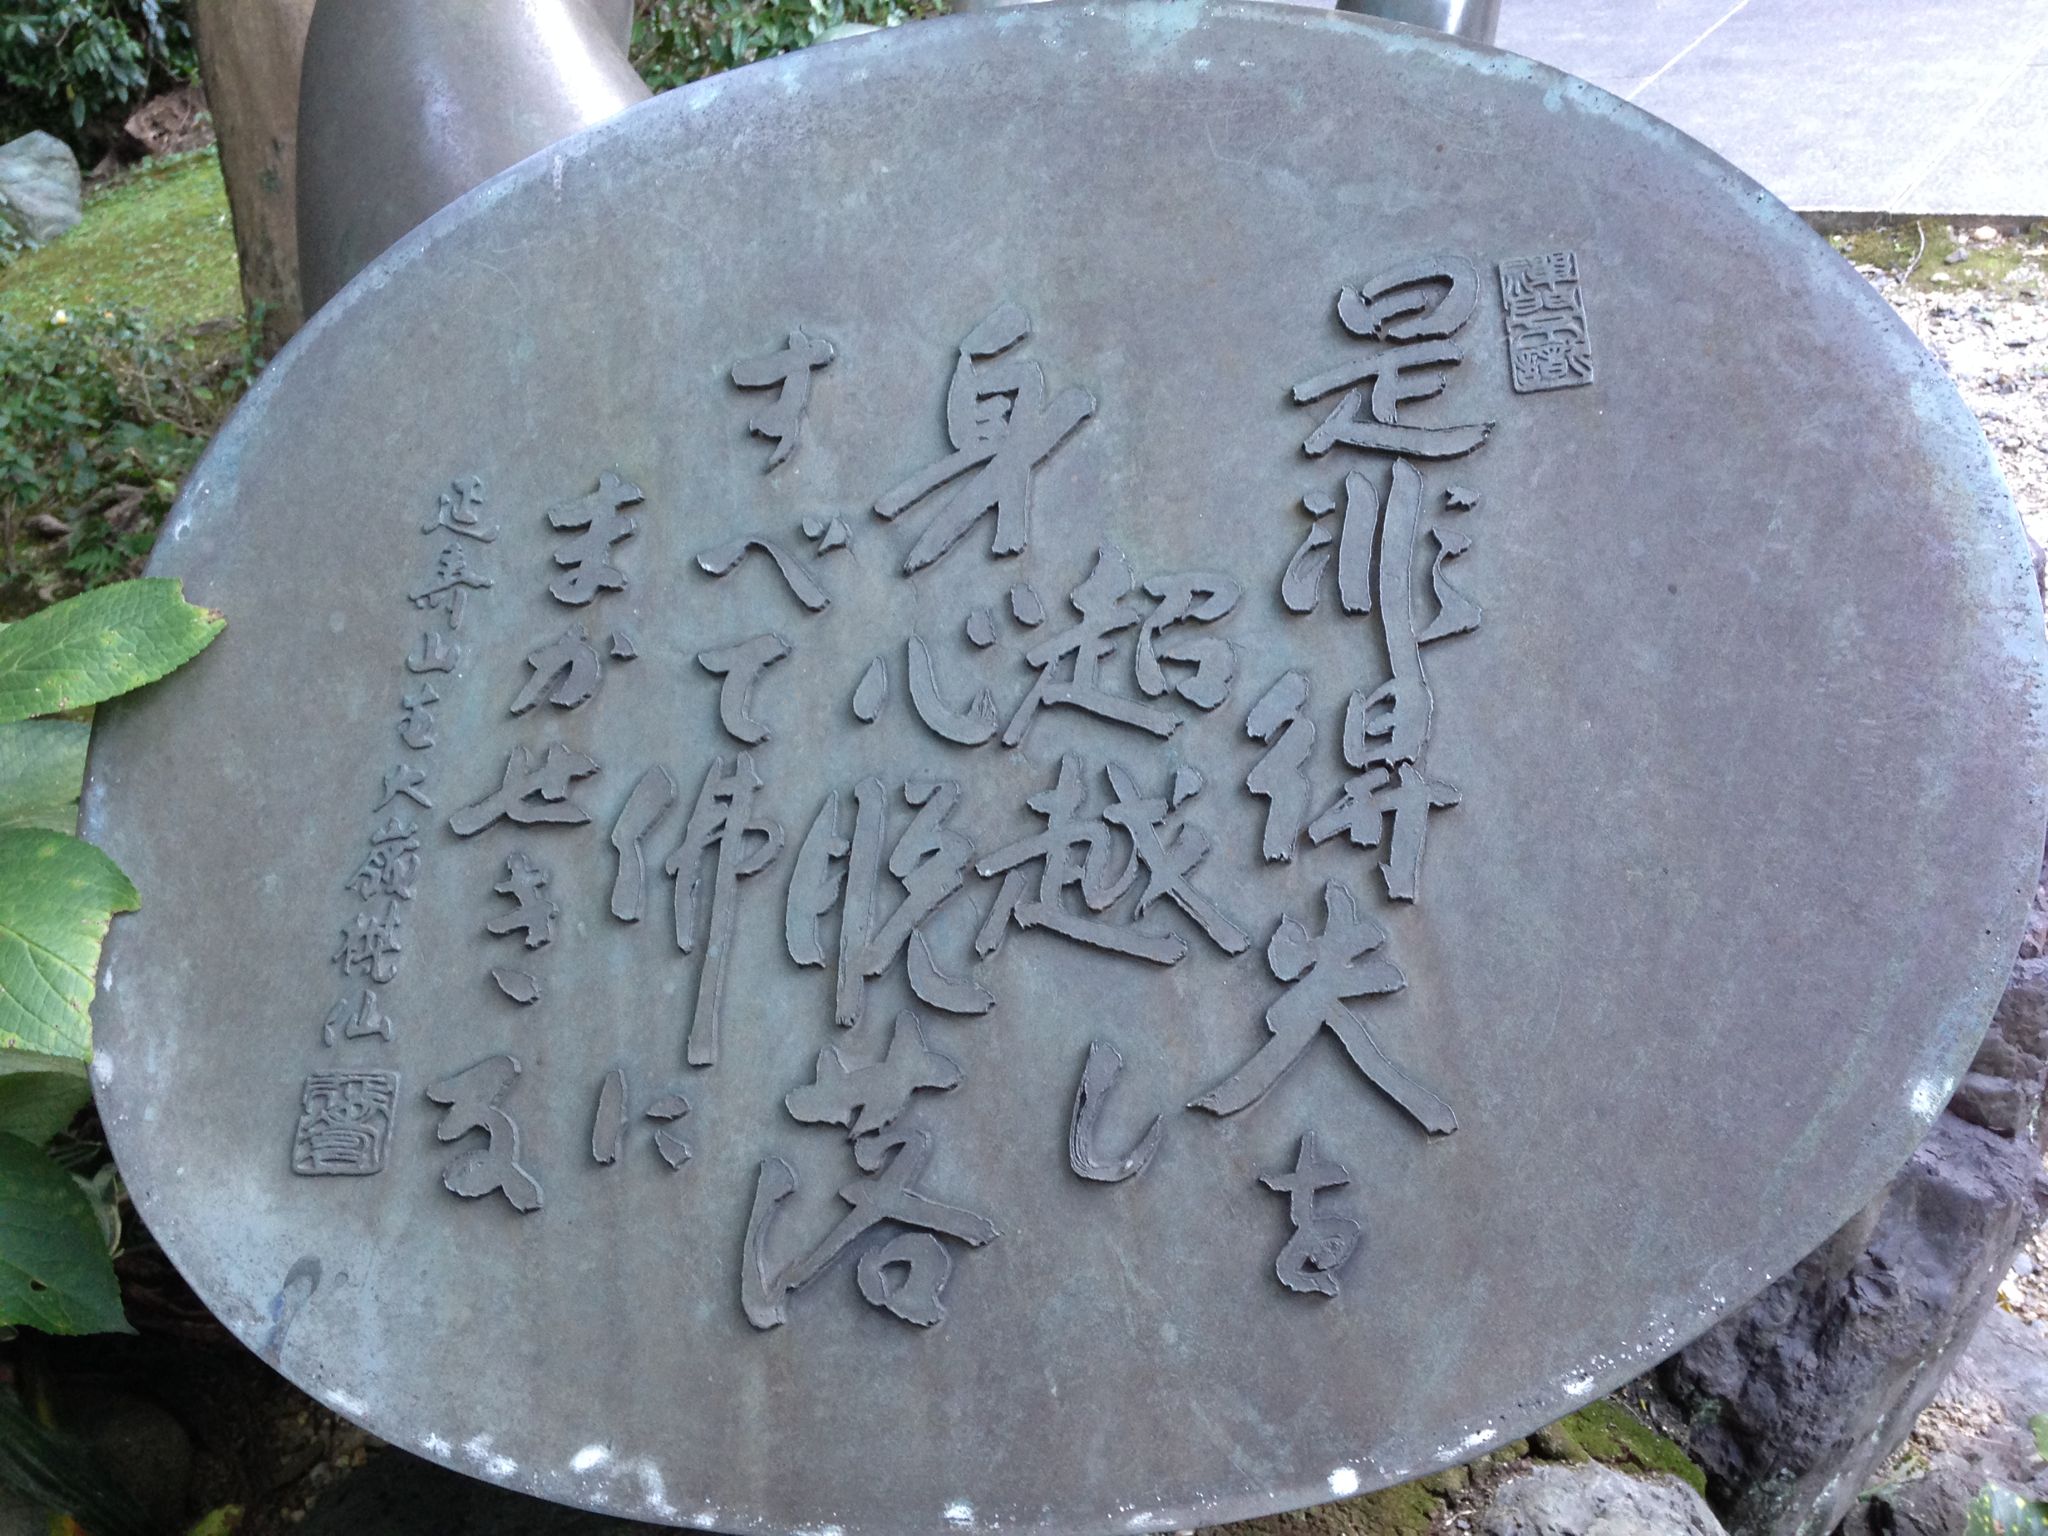 是非得失を
超越し
身心脱落
すべて佛に
まかせき
延寿山主大